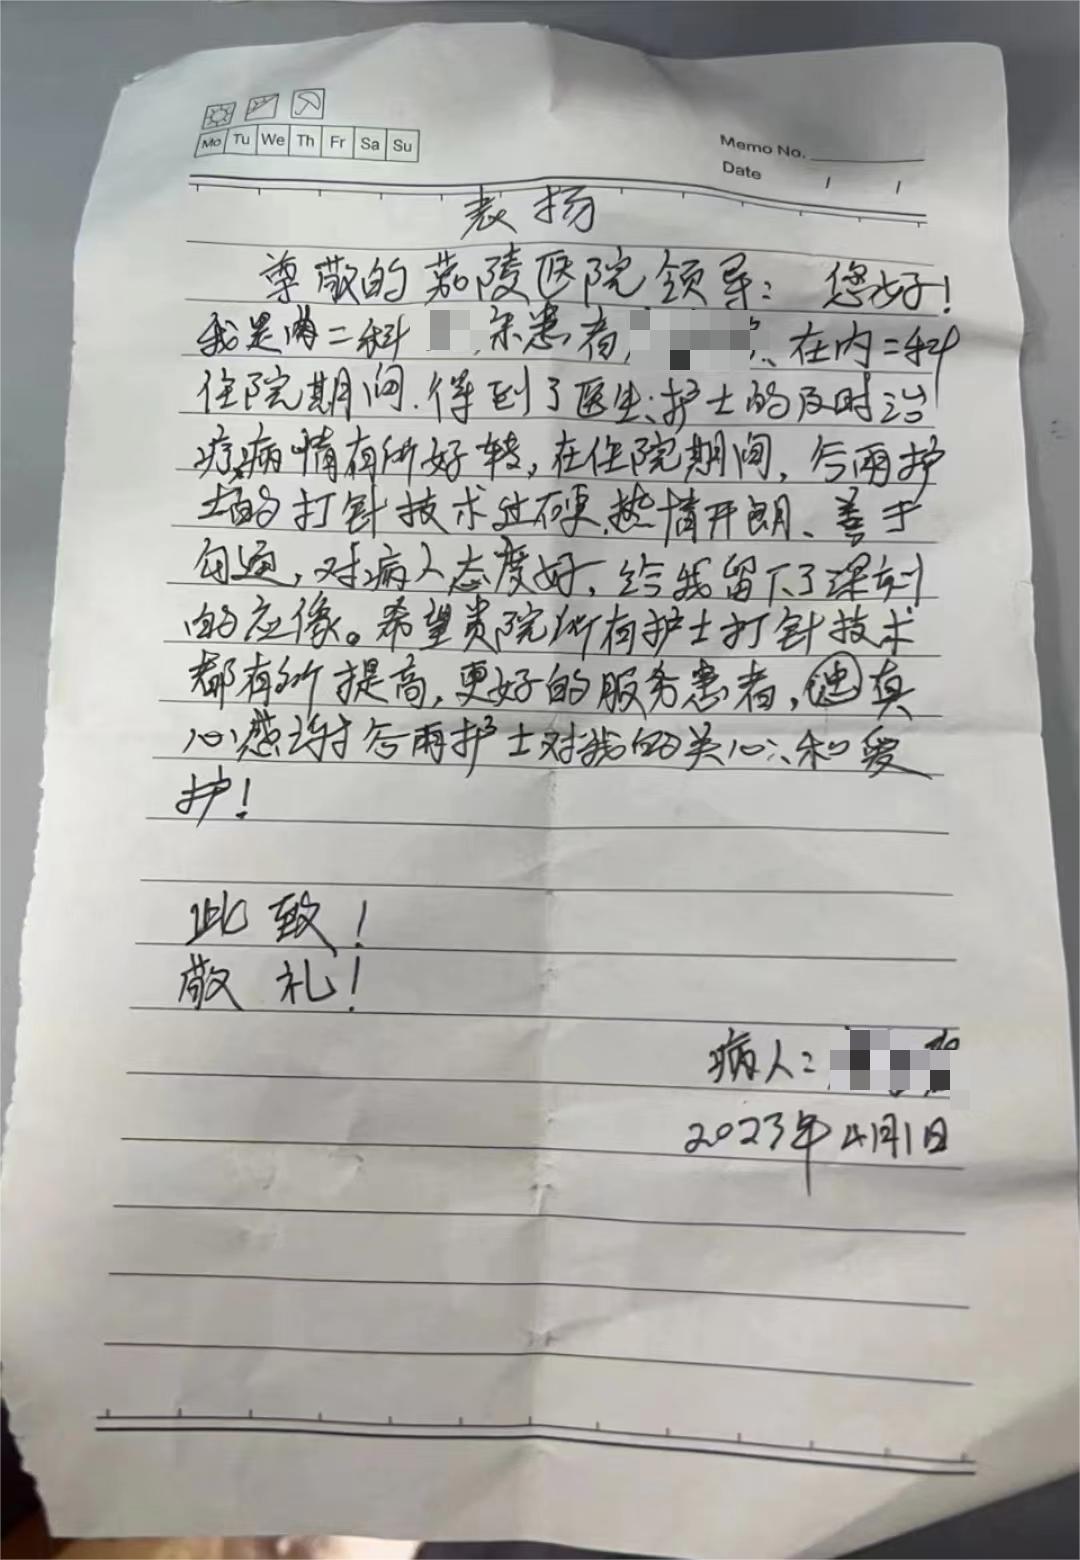 Mo Tu We Th Fr Sa Su
Memo No.
Date / /
表扬
尊敬的嘉陵医院领导：您好！
我是内二科 床患者 、在内二科
住院期间.得到了医生、护士的及时治
疗,病情有所好转,在住院期间,令雨护
士的打针技术过硬.热情开朗、善于
勾通,对病人态度好,给我留下了深刻
的应像。希望贵院所有护士打针技术
都有所提高,更好的服务患者, 真
心感谢令雨护士对我的关心、和爱
护！
此致！
敬礼！
病人：
2023年4月1日